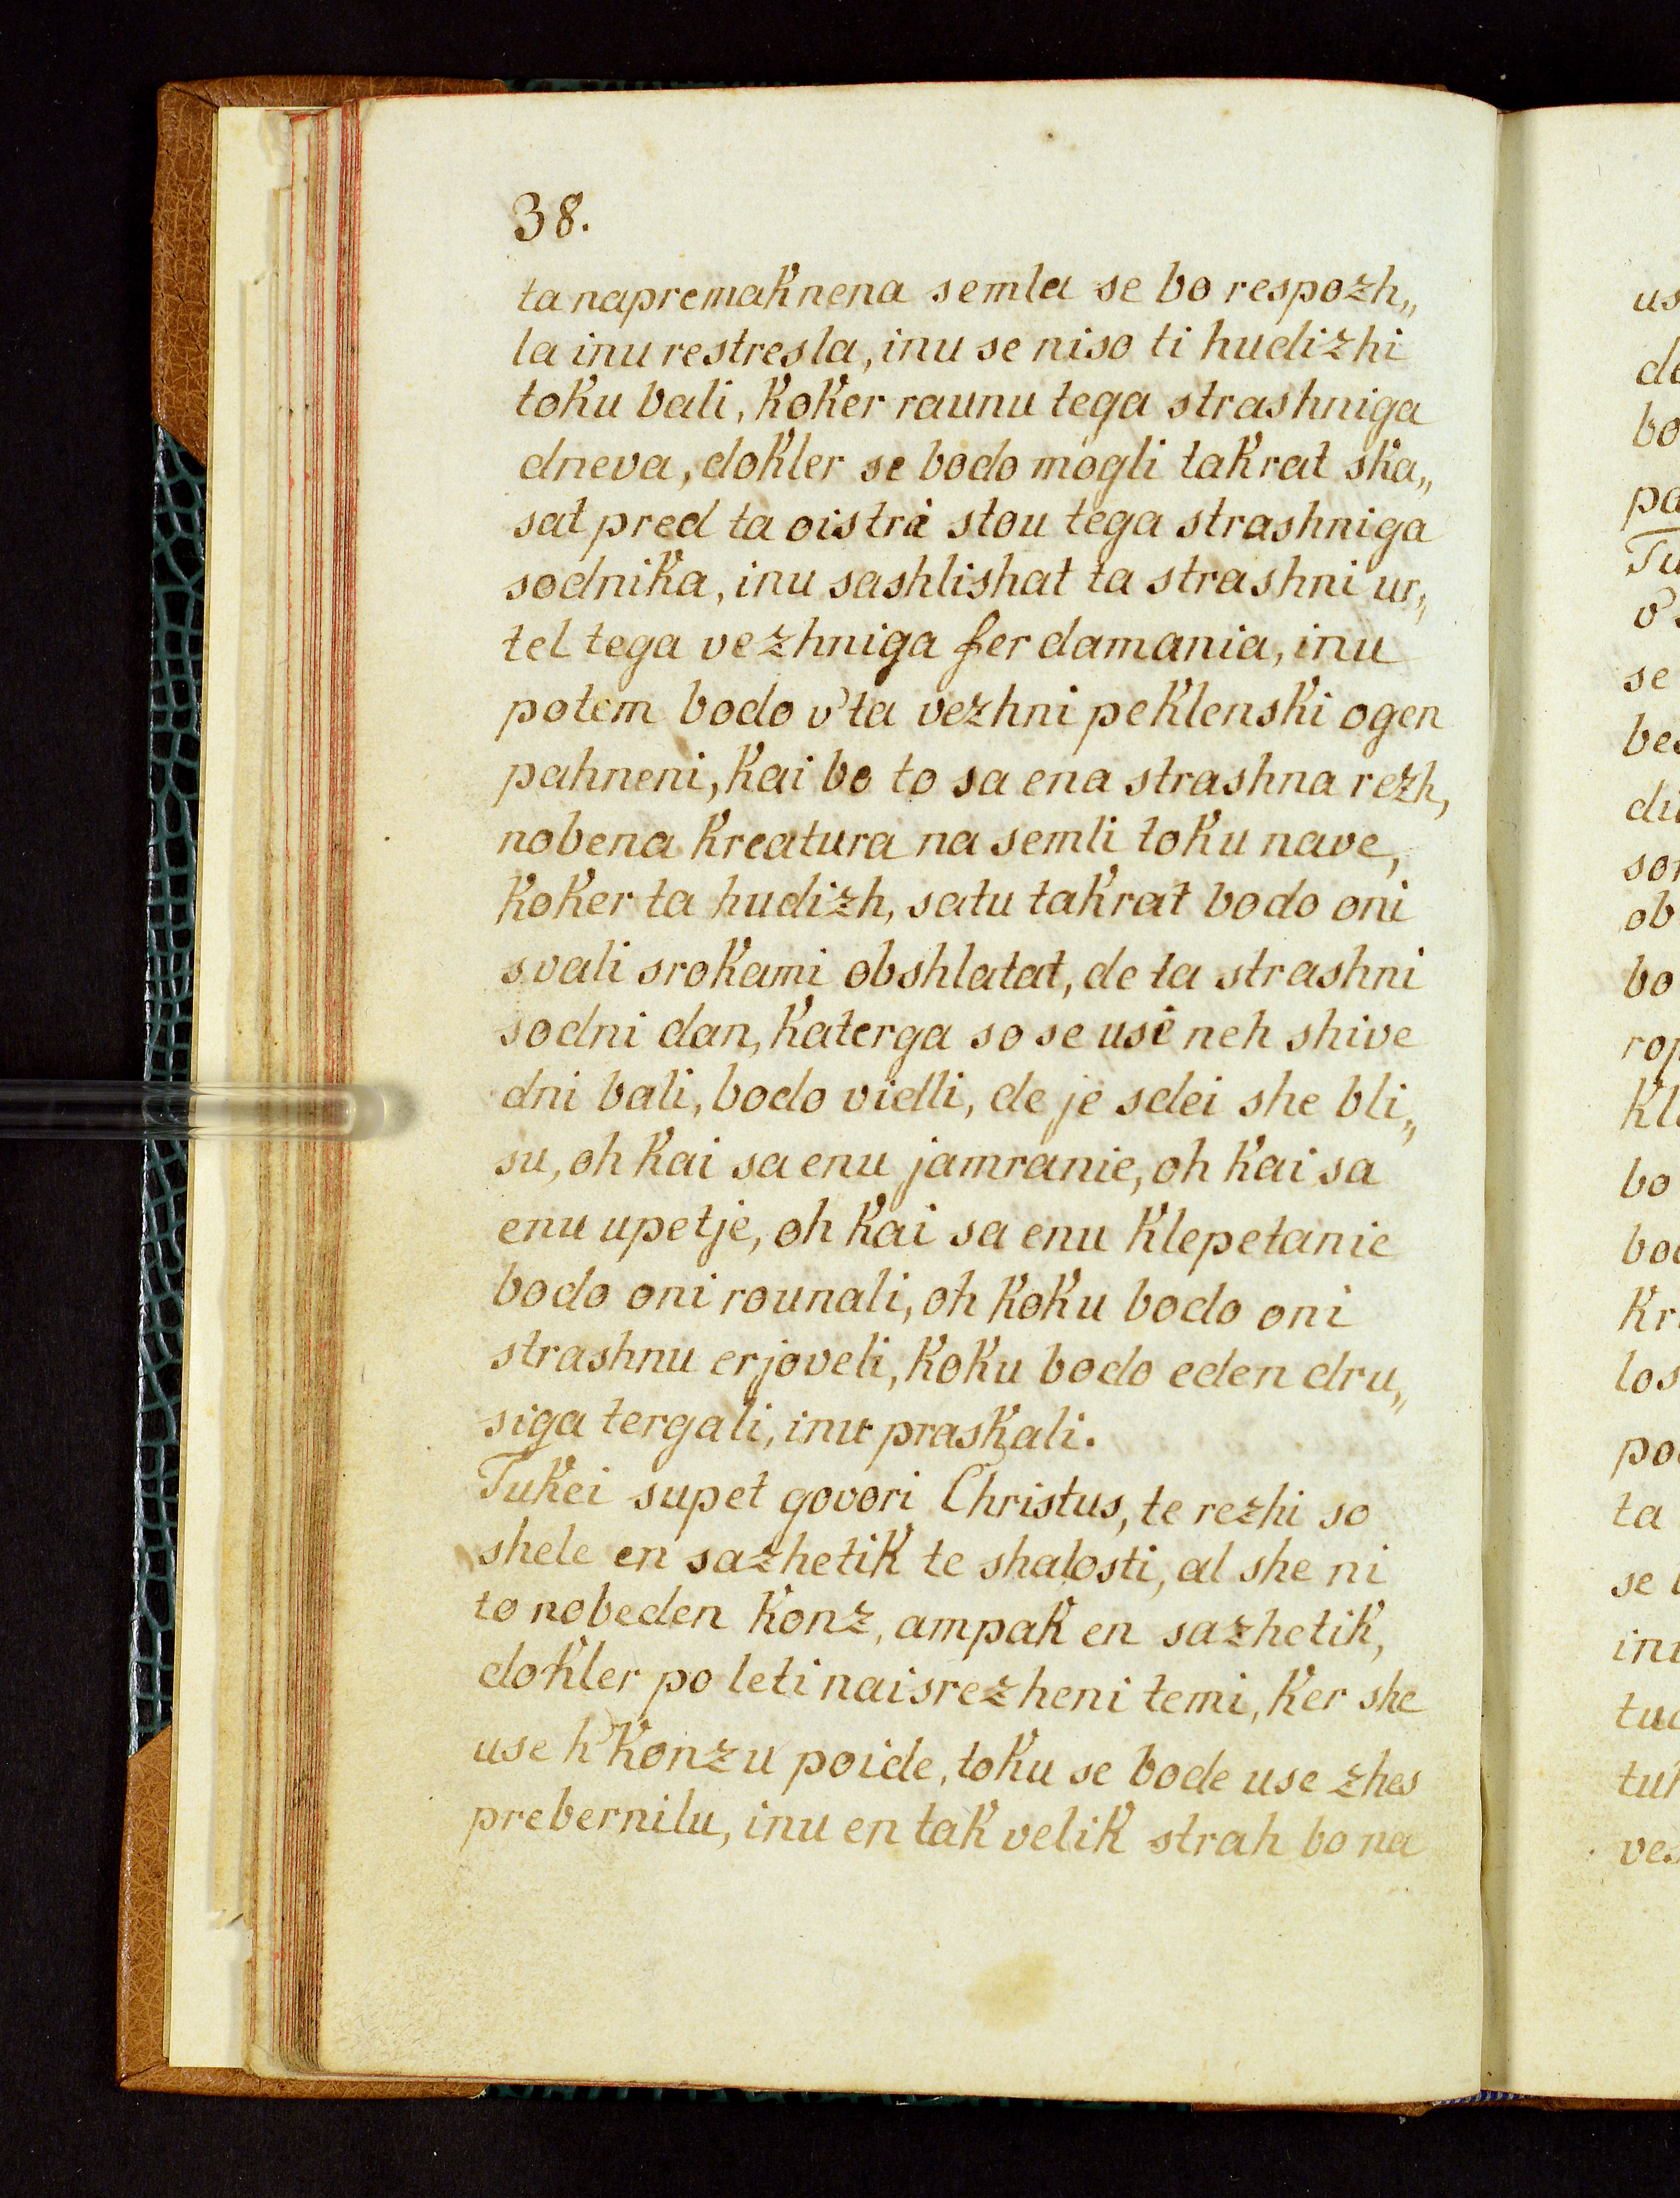 38.
ta napremaknena semla se bo respozh„
la inu restresla, inu se niso ti hudizhi
toku bali, koker raunu tega strashniga
dneva, dokler se bodo mogli takrat ska„
sat pred ta oistri stou tega strashniga
sodnika, inu sashlishat ta strashni ur„
tel tega vezhniga ferdamania, inu
potem bodo v'ta vezhni peklenski ogen
pahneni, kai bo to sa ena strashna rezh,
nobena kreatura na semli toku nave,
koker ta hudizh, satu takrat bodo oni
svali srokami obshlatat, de ta strashni
sodni dan, katerga so se usi neh shive
dni bali, bodo vidli, de je sdei she bli„
su, oh kai sa enu jamranie, oh kai sa
enu upetje, oh kai sa enu klepetanie
bodo oni rounali, oh koku bodo oni
strashnu erjoveli, koku bodo eden dru„
siga tergali, inu praskali.
Tukei supet govori Christus, te rezhi so
shele en sazhetik te shalosti, al she ni
to nobeden konz, ampak en sazhetik,
dokler po leti naisrezheni temi, ker she
use k'konzu poide, toku se bode use zhes
prebernilu, inu en tak velik strah bo na
us
bo
pa
Tu
v's
se
bo
bo
bo
ta